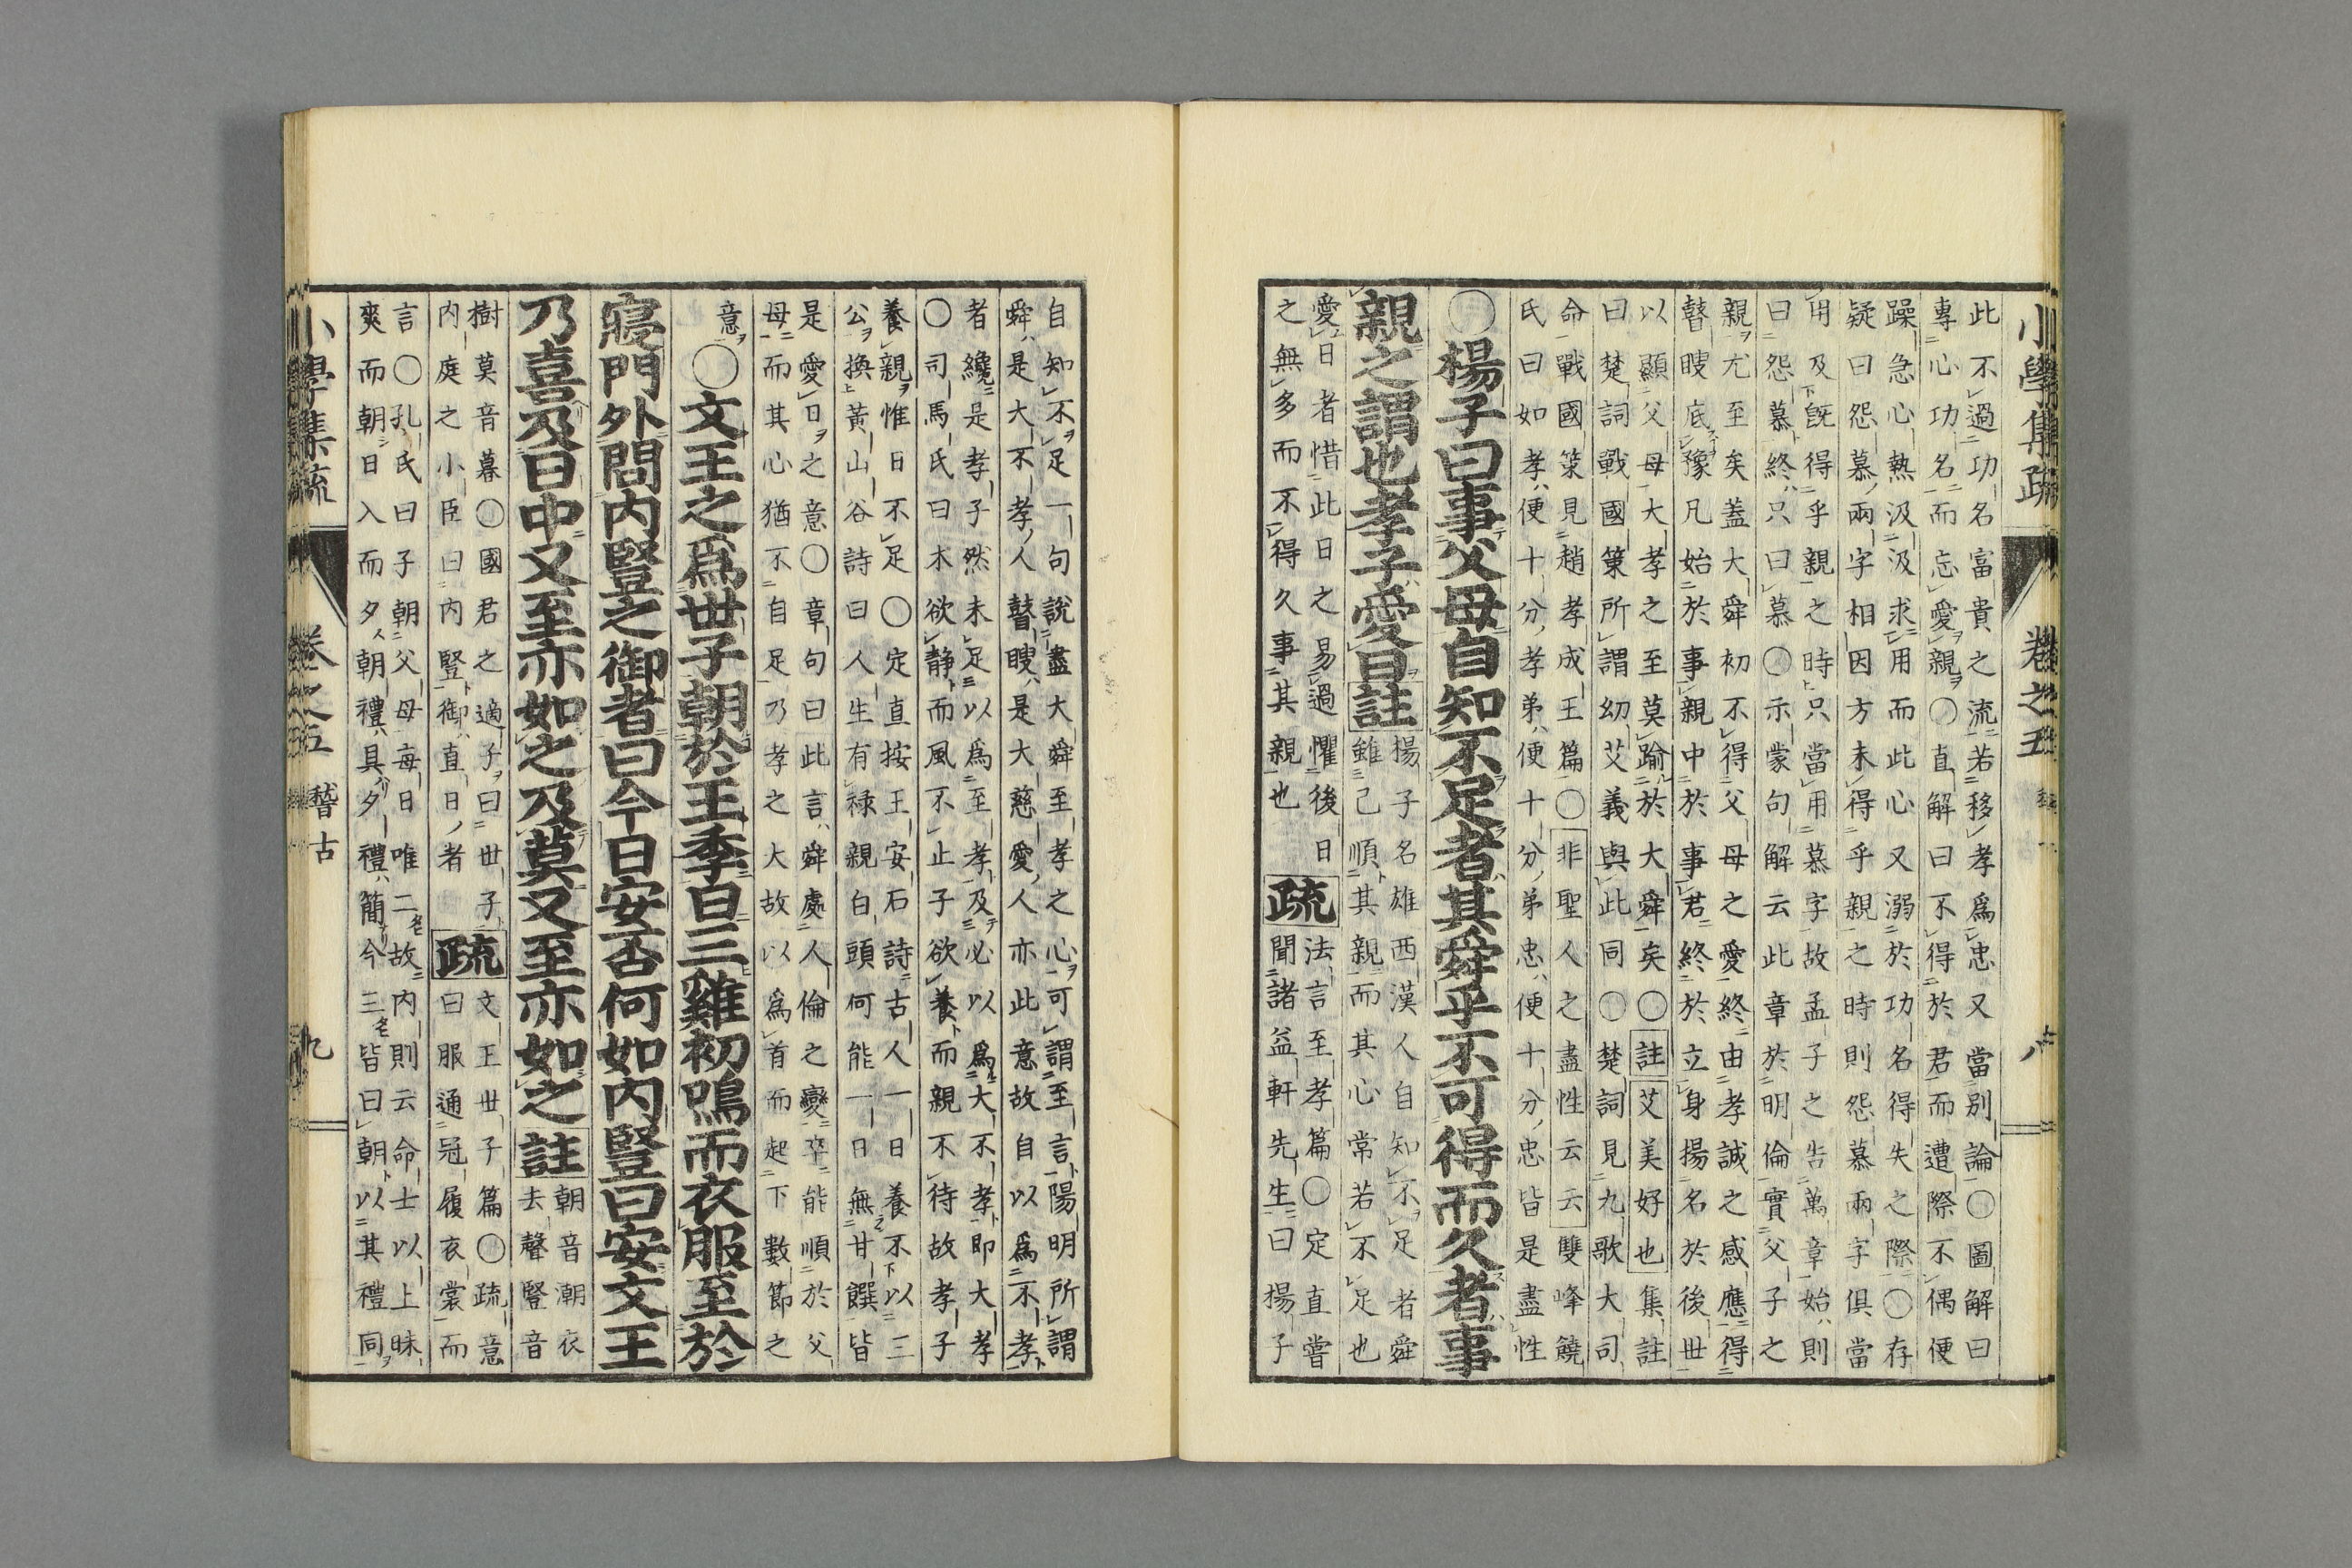 小學集疏 卷之五 八
此不過功名富貴之流若移孝爲忠又當別論○圖解曰
專心功名而忘愛親○直解曰不得於君而遭際不偶便
躁急心熱汲汲求用而此心又溺於功名得失之際○存
疑曰怨慕兩字相因方未得乎親之時則怨慕兩字俱當
用及既得乎親之時只當用慕字故孟子之告萬章始則
曰怨慕終只曰慕○示蒙句解云此章於明倫實父子之
親尤至矣蓋大舜初不得父母之愛終由孝誠之感應得
瞽瞍底豫凡始於事親中於事君終於立身揚名於後世
以顯父母大孝之至莫踰於大舜矣○註艾美好也集註
曰楚詞戰國策所謂幼艾義與此同○楚詞見九歌大司
命戰國策見趙孝成王篇○非聖人之盡性云云雙峰饒
氏曰如孝便十分孝弟便十分弟忠便十分忠皆是盡性
○楊子曰事父母自知不足者其舜乎不可得而久者事
親之謂也孝子愛日註
楊子名雄西漢人自知不足者舜
雖己順其親而其心常若不足也
愛日者惜此日之易過懼後日
之無多而不得久事其親也
疏
法言至孝篇○定直嘗
聞諸益軒先生曰楊子
自知不足一句說盡大舜至孝之心可謂至言陽明所謂
舜是大不孝人瞽瞍是大慈愛人亦此意故自以爲不孝
者纔是孝子然未足以爲至孝及必以爲大不孝即大孝
○司馬氏曰木欲静而風不止子欲養而親不待故孝子
養親惟日不足○定直按王安石詩古人一日養不以三
公換黃山谷詩曰人生有禄親白頭何能一日無甘饌皆
是愛日之意○章句曰此言舜處人倫之變卒能順於父
母而其心猶不自足乃孝之大故以爲首而起下數節之
意○文王之爲世子朝於王季日三雞初鳴而衣服至於
寢門外問內豎之御者曰今日安否何如內豎曰安文王
乃喜及日中又至亦如之及莫又至亦如之註
朝音潮衣
去聲豎音
樹莫音暮○國君之適子曰世子
內庭之小臣曰內豎御直日者
疏
文王世子篇○疏意
曰服通冠履衣裳而
言○孔氏曰子朝父母每日唯二故內則云命士以上昧
爽而朝日入而夕朝禮具夕禮簡今三皆曰朝以其禮同
小學集疏 卷之五 稽古 九